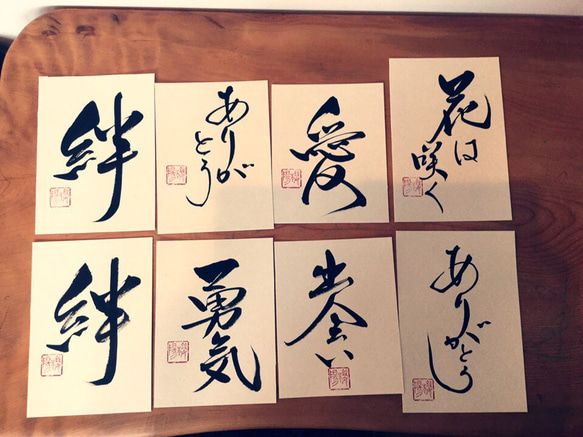 絆
ありが
とう
愛
花は
咲く
絆
勇気
出会い
ありがとう